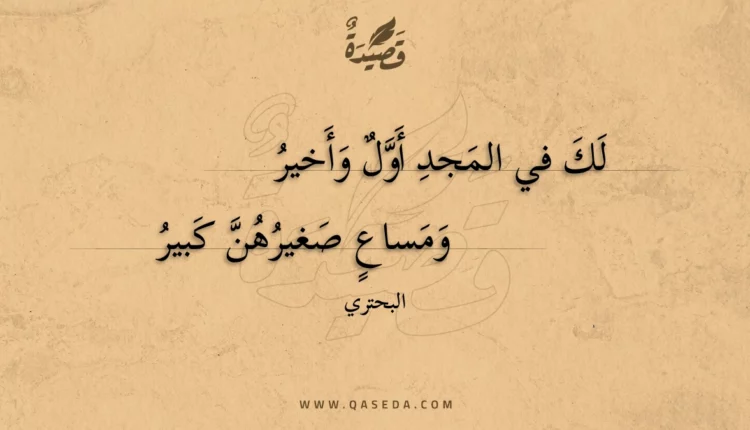 قَصِيْدَةٌ
لَكَ في المَجدِ أَوَّلٌ وَأَخيرُ
وَمَساعٍ صَغيرُهُنَّ كَبيرُ
البحتري
WWW.QASEDA.COM